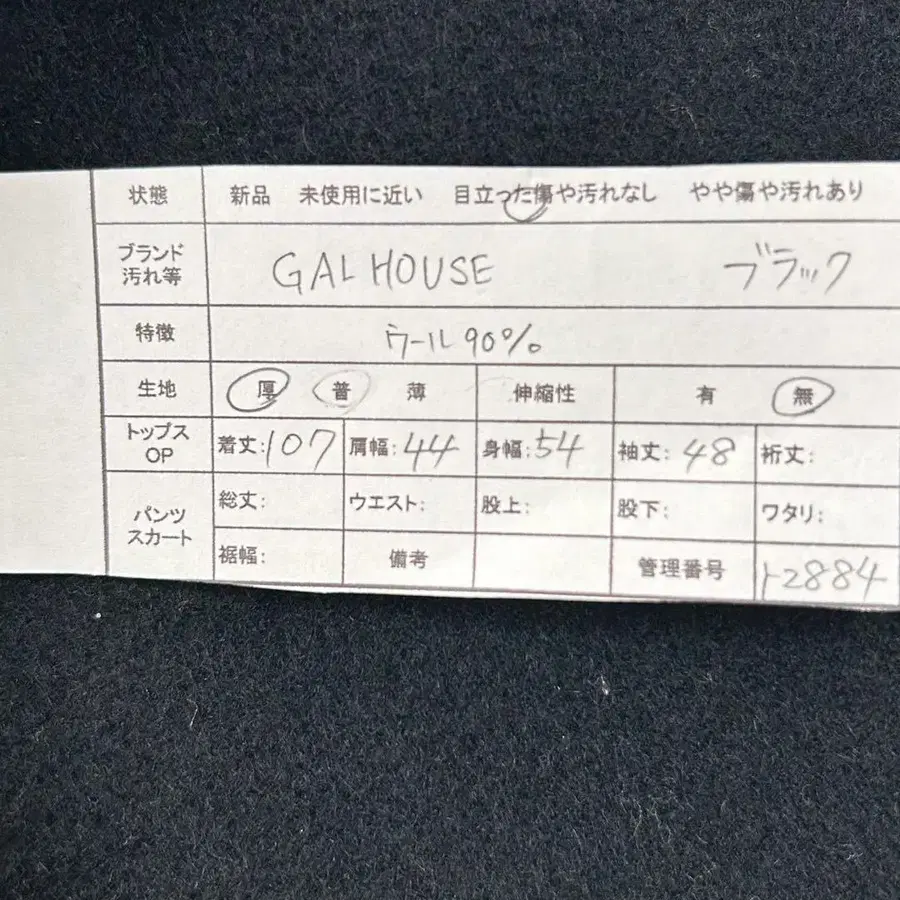 状態 新品 未使用に近い 目立った傷や汚れなし やや傷や汚れあり
ブランド
汚れ等 GAL HOUSE ブラック
特徴 ウール90%
生地 厚 普 薄 伸縮性 有 無
トップス
OP 着丈:107 肩幅:44 身幅:54 袖丈:48 裄丈:
パンツ
スカート 総丈: ウエスト: 股上: 股下: ワタリ:
裾幅: 備考 管理番号 ト2884